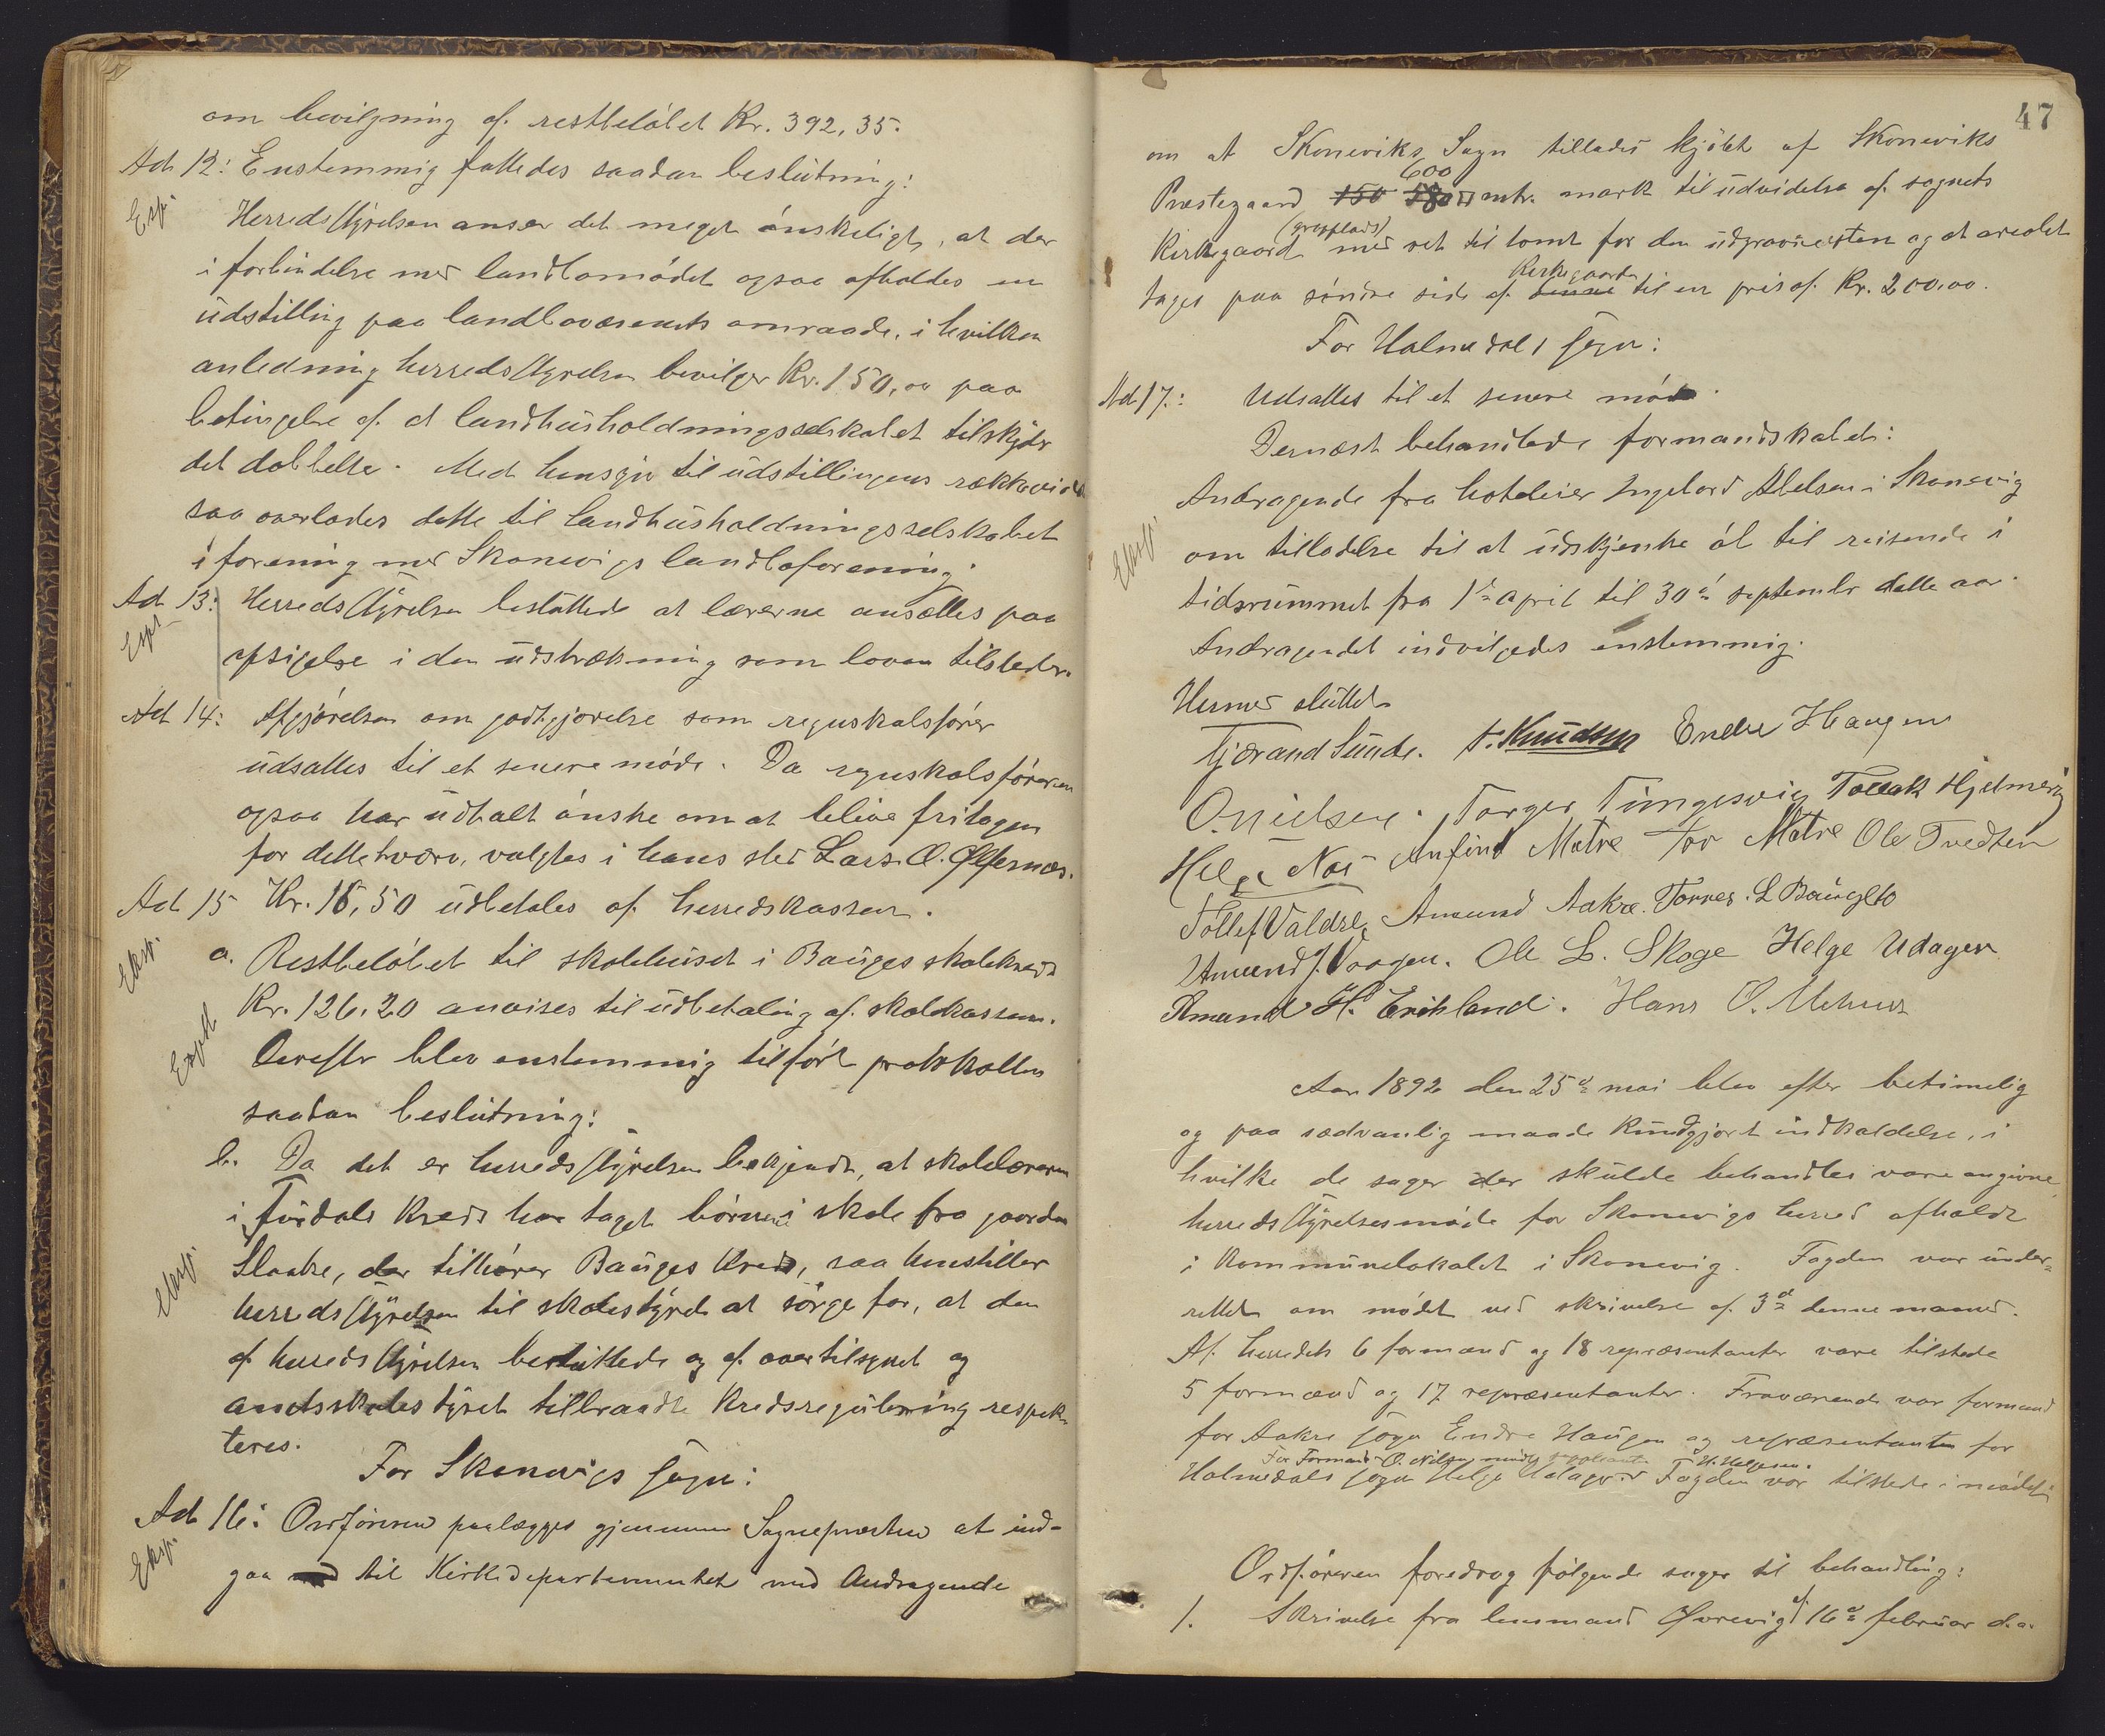 om bevilgning af restbeløbet Kr. 392,35.
Ad 12: Enstemmig fattedes saadan beslutning:
Exp.
Herredsstyrelsen anser det meget ønskeligt, at der
i forbindelse med landbomødet ogsaa afholdes en
udstilling paa landbovæsenets omraade, i hvilken
anledning herredsstyrelsen bevilger Kr. 150,00 paa
betingelse af at landhusholdningsselskabet tilskyder
det dobbelte. Med hensyn til udstillingens rækkevidde
saa overlades dette til landhusholdningsselskabet
i forening med Skonevigs landboforening.
Ad 13: Herredsstyrelsen besluttede at lærerne ansættes paa
Exp.
opsigelse i den udstrækning som loven tilsteder.
Ad 14: Afgjørelsen om godtgjørelse som regnskabsfører
udsattes til et senere møde. Da regnskabsføreren
ogsaa har udtalt ønske om at blive fritagen
for dette hverv, valgtes i hans sted Lars O. Ølfernæs.
Ad 15 Kr. 16,50 udbetales af herredskassen.
Eksp.
a. Restbeløbet til skolehuset i Bauges skolekreds
Kr. 126.20 anvises til udbetaling af skolekassen.
Exped
Derefter blev enstemmig tilført protokollen
saadan beslutning:
b. Da det er herredsstyrelsen bekjendt, at skolelæreren
i Furdals Kreds har taget børnene i skole fra gaarden
Slaatre, der tilhører Bauges Kreds, saa henstiller
Eksp.
herredsstyrelsen til skolestyret at sørge for, at den
af herredsstyrelsen besluttede og af overtilsynet og
amtsskolestyret tilraadte Kredsregulering respek-
teres.
For Skonevigs sogn:
Ad 16: Ordføreren paalægges gjennem Sognepresten at ind-
Eksp.
gaa til Kirkedepartementet med Andragende
47
om at Skoneviks Sogn tillades kjøbt af Skoneviks
600
Prestegaard 150 580 □ mtr. mark til udvidelse af sognets
(gravplads)
Kirkegaard med ret til tomt for den udgravne sten og at arealet
Kirkegaarden
tages paa søndre side af denne til en pris af Kr. 200.00.
For Holmedals sogn:
Ad 17.: Udsattes til et senere møde.
Dernæst behandlede formandskabet:
Andragende fra hotelier Ingebord Abelsen i Skonevig
Eksp.
om tilladelse til at udskjenke øl til reisende i
tidsrummet fra 1ste april til 30te september dette aar.
Andragendet indvilgedes enstemmig.
Hermed sluttet
Tjærand Sunde. T. Knudsen Endre Haugen
O. Nielsen. Torger Tungesvig Tollak Hjelmevig
Helge Næs Anfind Matre Tor Matre Ole Tvedten
Tollef Valdre, Amund Aakre. Torres. L Baugsto
Amund J. Vaagen. Ole L. Skoge Helge Udagen
Amund H. Eriksland. Hans O. Mehus
Aar 1892 den 25de mai blev efter betimelig
og paa sædvanlig maade kundgjort indkaldelse, i
hvilke de sager der skulde behandles vare angivne,
herredsstyrelsesmøde for Skonevigs herred afholdt
i Kommunelokalet i Skonevig. Fogden var under-
rettet om mødet ved skrivelse af 3de denne maaned.
Af herredets 6 formænd og 18 repræsentanter vare tilstede
5 formænd og 17 repræsentanter. Fraværende var formand
for Aakre sogn Endre Haugen og repræsentanten for
For Formand O. Nilsen mødte suppleanten H. Helgesen.
Holmedals sogn Helge Udagen. Fogden var tilstede i mødet.
Ordføreren foredrog følgende sager til behandling:
1. Skrivelse fra lensmand Øvrevig af 16de februar d.a.